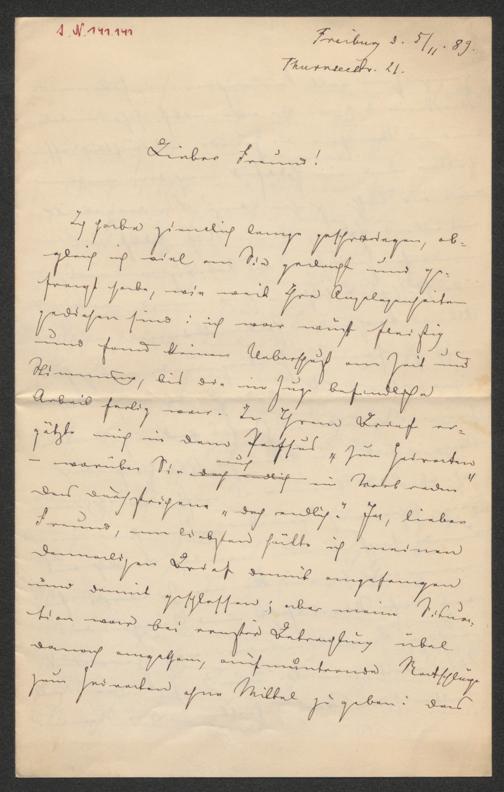 S.N. 141.141
Freiburg d. 5/11. 89.
Thurnseestr. 21.
Lieber Freund!
Ich habe ziemlich lange geschwiegen, ob-
gleich ich viel an Sie gedacht und ge-
fragt habe, wie weit Ihre Angelegenheiten
gediehen sind: ich war recht fleißig
und fand keinen Ueberschuß an Zeit und
Stimmung, bis die im Zuge befindliche
Arbeit fertig war. In Ihrem Brief er-
götzte mich in dem Passus „zum Heiraten"
– worüber Sie doch endlich auch im Wort reden
das durchstrichene „doch endlich". Ja, lieber
Freund, am liebsten hätte ich meinen
damaligen Brief damit angefangen
und damit geschlossen; aber meine Situa-
tion war bei ernster Betrachtung übel
danach angethan, aufmunternde Ratschläge
zum Heiraten ohne Mittel zu geben: das